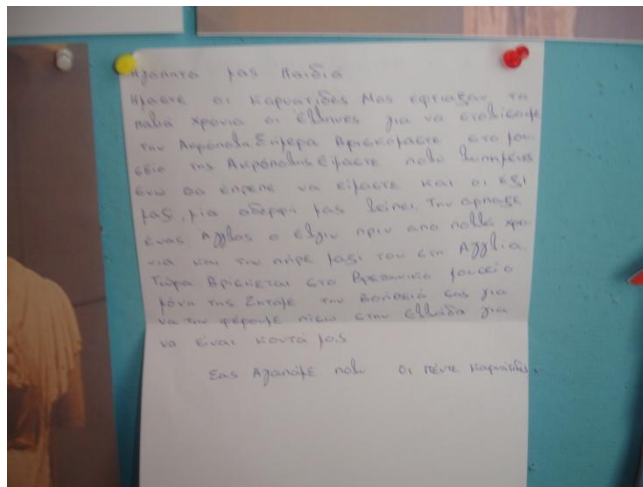 Αγαπητά μας Παιδιά
Είμαστε οι Καρυατίδες Μας έφτιαξαν τα
παλιά χρόνια οι Έλληνες για να στολίσουμε
την Ακρόπολη. Σήμερα Βρισκόμαστε στο μου-
σείο της Ακρόπολης Είμαστε πολύ λυπημένες
ενώ θα έπρεπε να είμαστε και οι έξι
μαζί, μία αδερφή μας λείπει. Την άρπαξε
ένας Άγγλος ο έλγιν πριν από πολλά χρό-
νια και την πήρε μαζί του στη Αγγλία.
Τώρα Βρίσκεται στο Βρετανικό μουσείο
μόνη της Ζητάμε την βοήθειά σας για
να την φέρουμε πίσω στην Ελλάδα για
να είναι κοντά μας
Σας Αγαπάμε πολύ οι πέντε Καρυάτιδες.